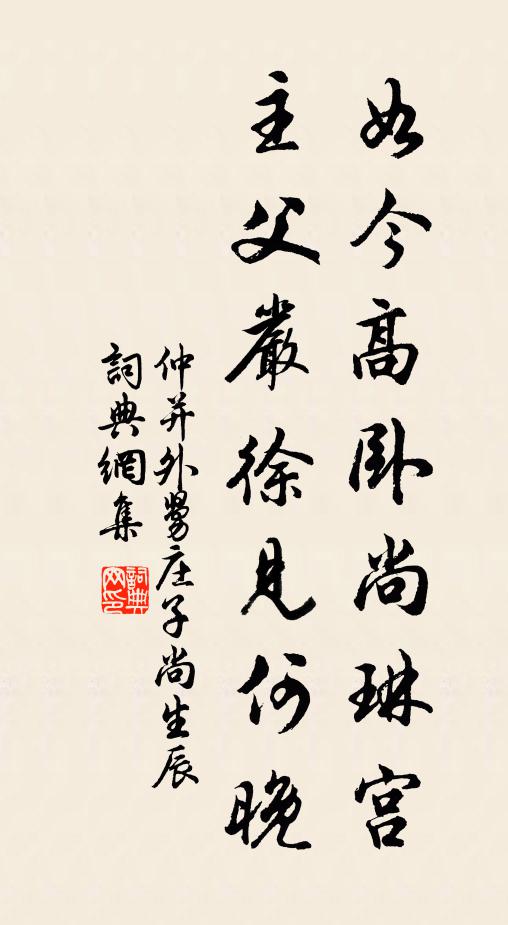 如今高卧尚琳宫
主父嚴徐見何晚
仲并外舅庄子尚生辰
詞典網集
詞典網印